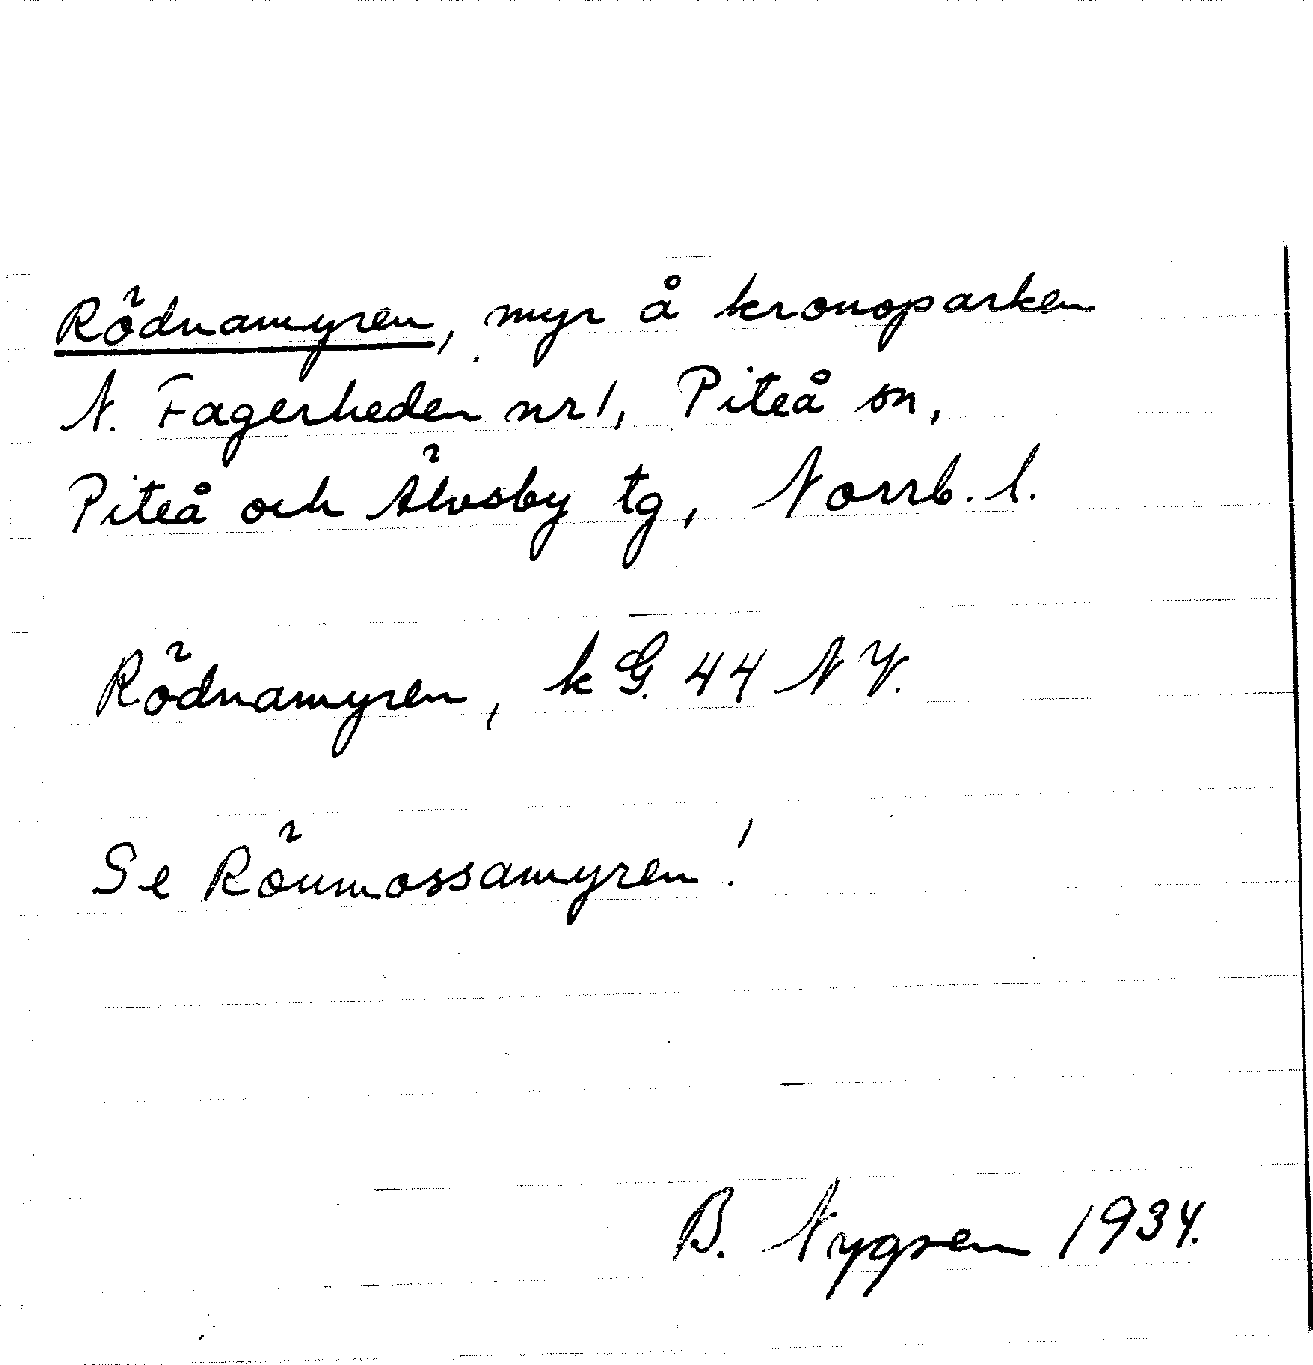 Rödnamyren, myr å kronoparken
N. Fagerheden nr 1, Piteå sn,
Piteå och Älvsby tg, Norrb. l.
Rödnamyren, k G. 44 N V.
Se Rönmossamyren!
B. Nygren 1934.